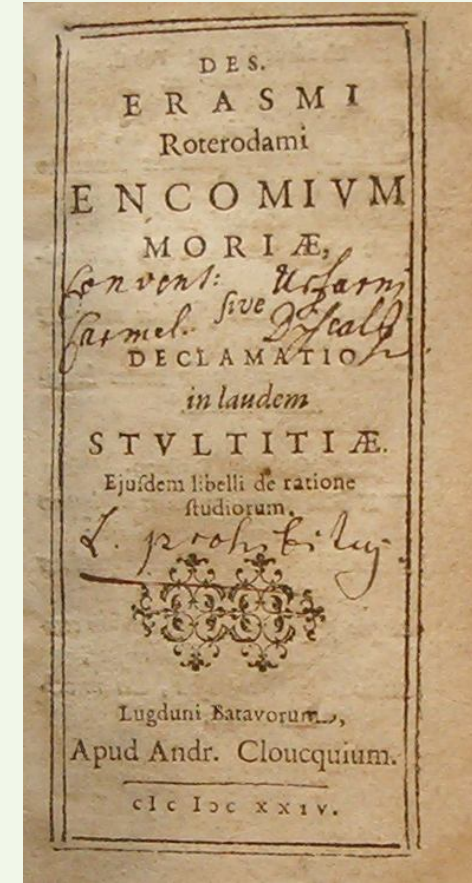 DES.
ERASMI
Roterodami
ENCOMIVM
MORIÆ,
Convent:
ſive
Carmel. Diſcal
DECLAMATIO
in laudem
STVLTITIÆ.
Ejuſdem libelli de ratione
ſtudiorum.
L. prohibitus
Lugduni Batavorum,
Apud Andr. Cloucquium.
cIɔ Iɔc xxıv.